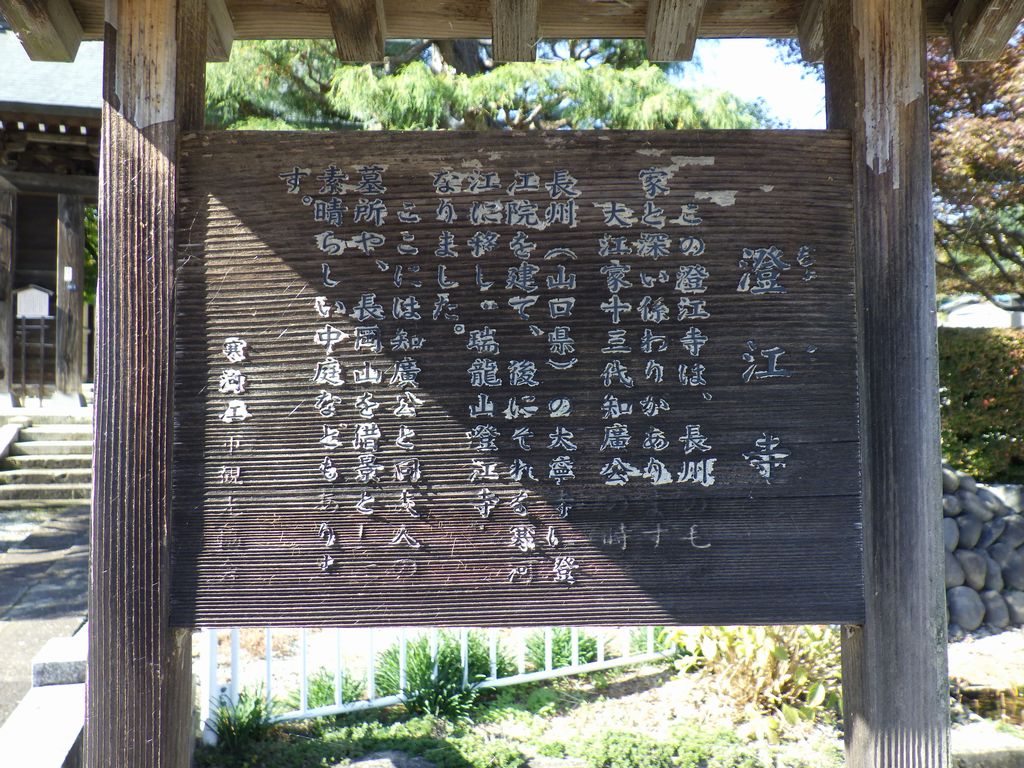 澄江寺
この澄江寺は、長州のも
家と深い係わりがあります
大江家十三代知廣公の時
長州（山口県）の大寧寺り澄
江院を建て、後にそれを寒河
江に移し、瑞龍山澄江寺
なりました。
ここには知廣公と同夫人の
墓所や、長岡山を借景とし
素晴らしい中庭などもありま
す。
寒河江市観光協会